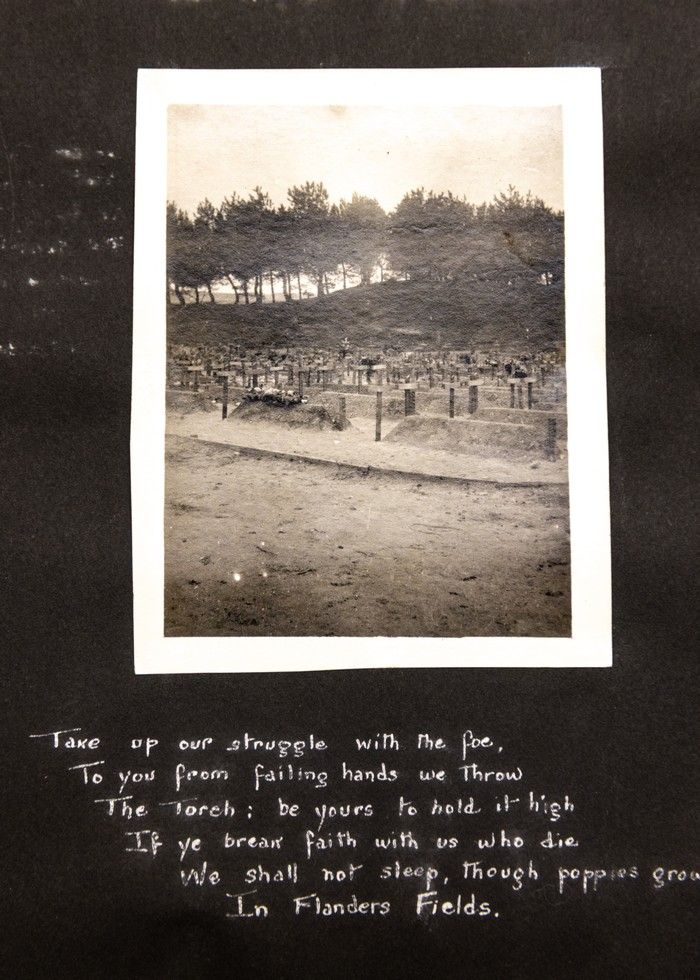 Take up our struggle with the foe,
To you from failing hands we throw
The Torch; be yours to hold it high
If ye break faith with us who die
We shall not sleep, though poppies grow
In Flanders Fields.